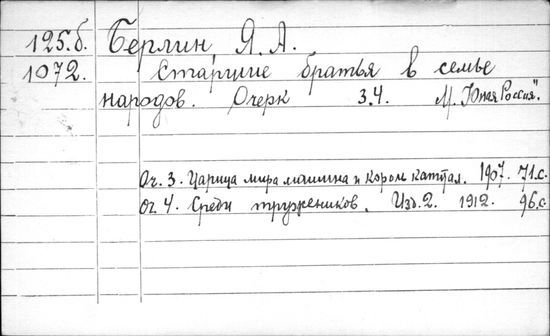 125.б. Берлин, Я. А.
1072. Старшие братья в семье
народов. Очерк 3.4. М. "Юная Россия".
Оч. 3. Царица мира машина и король капитал. 1907. 71.с.
Оч. 4. Среди тружеников. Изд. 2. 1912. 96.с.